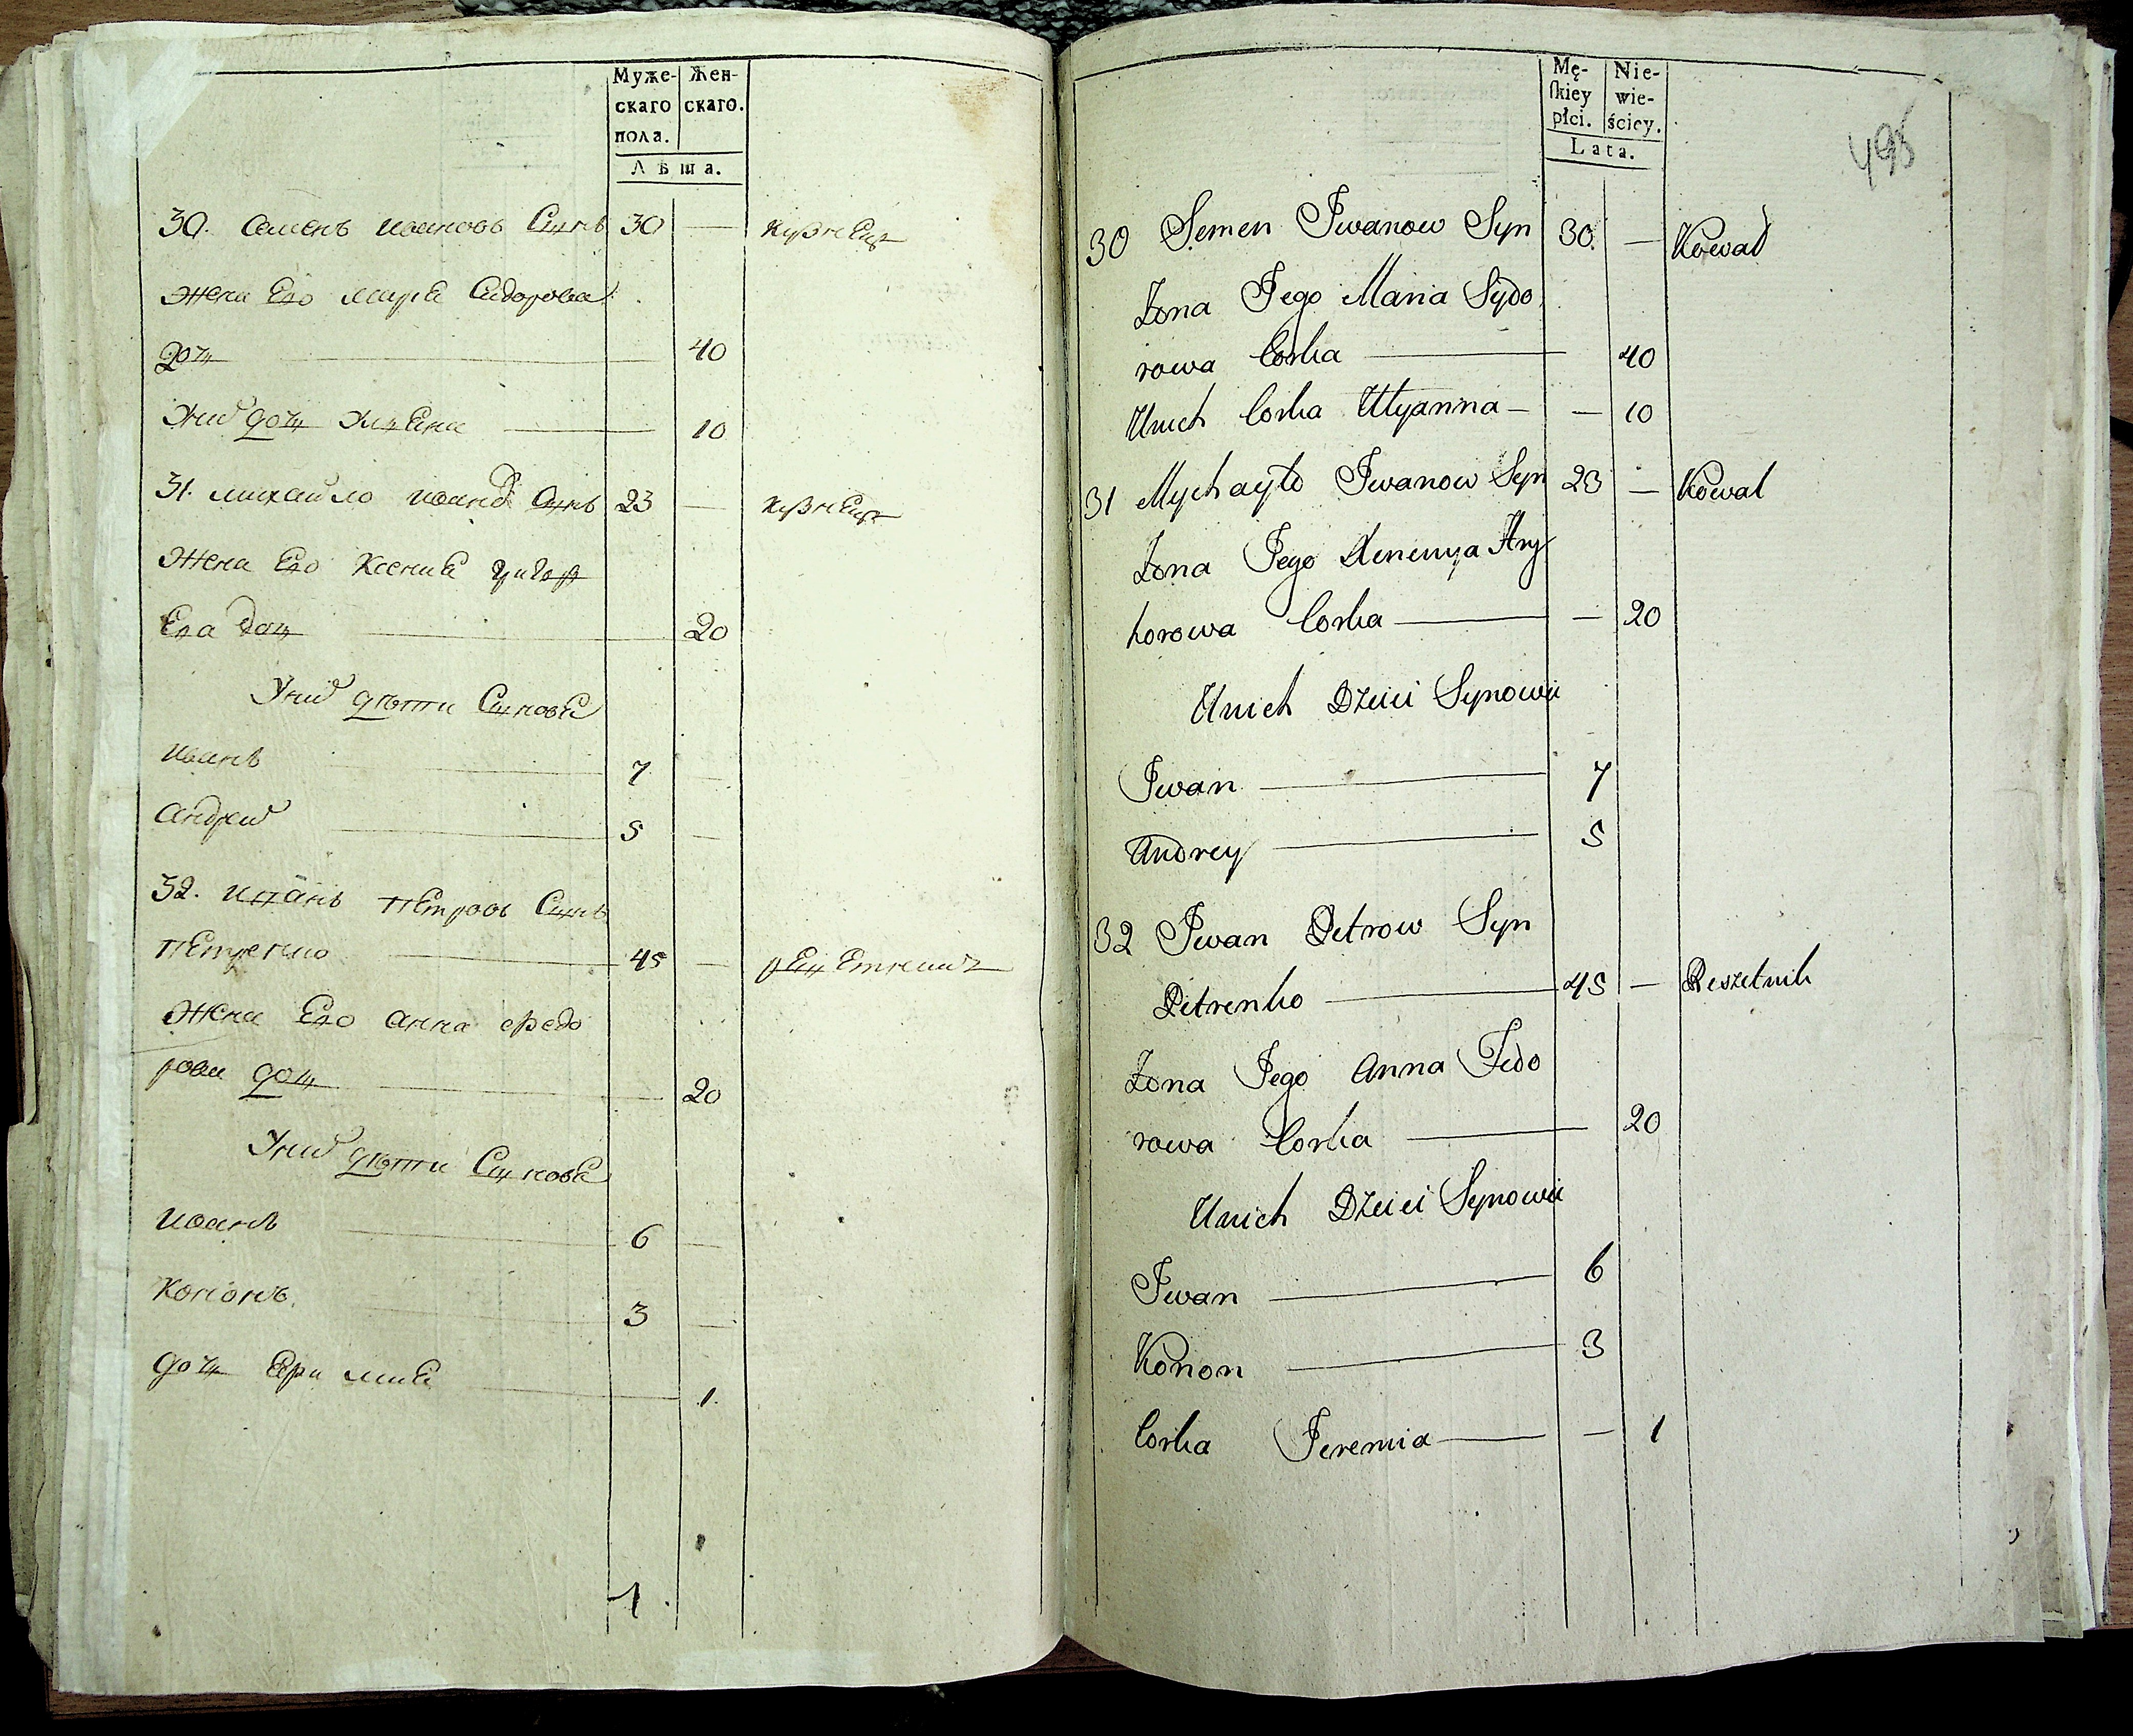 Муже- Жен-
скаго скаго.
пола.
Лѣта.
30. Семенъ Ивановъ Сынъ 30 — кузнецъ
Жена Его Марья Сидорова
дочь — 40
Уних дочь Ульена — 10
31. Михайло Иванов Сынъ 23 — кузнецъ
Жена Его Ксения Григор
Ева дочь — 20
Уних дѣти Сыновья
Иванъ — 7 —
Андрей — 5 —
32. Иванъ Петровъ Сынъ
Петренко — 45 — решетникъ
Жена Его Анна Федо
рова дочь — 20
Уних дѣти Сыновья
Иванъ — 6 —
Кононъ 3 —
дочь Еримия — 1.
1.
Mę- Nie-
skiey wie-
płci. ściey.
Lata.
495
30 Semen Iwanow Syn 30 — Kowal
Żona Iego Maria Sydo
rowa Corka — 40
Unich Corka Ulyanna — — 10
31 Mychayło Iwanow Syn 23 — Kowal
Żona Iego Xenemya Hry
horowa Corka — — 20
Unich Dzieci Synowie
Iwan — 7
Andrey — 5
32 Iwan Petrow Syn
Petrenko — 45 — Reszetnik
Żona Iego Anna Fedo
rowa Corka — 20
Unich Dzieci Synowie
Iwan — 6
Konon — 3
Corka Ieremia — — 1